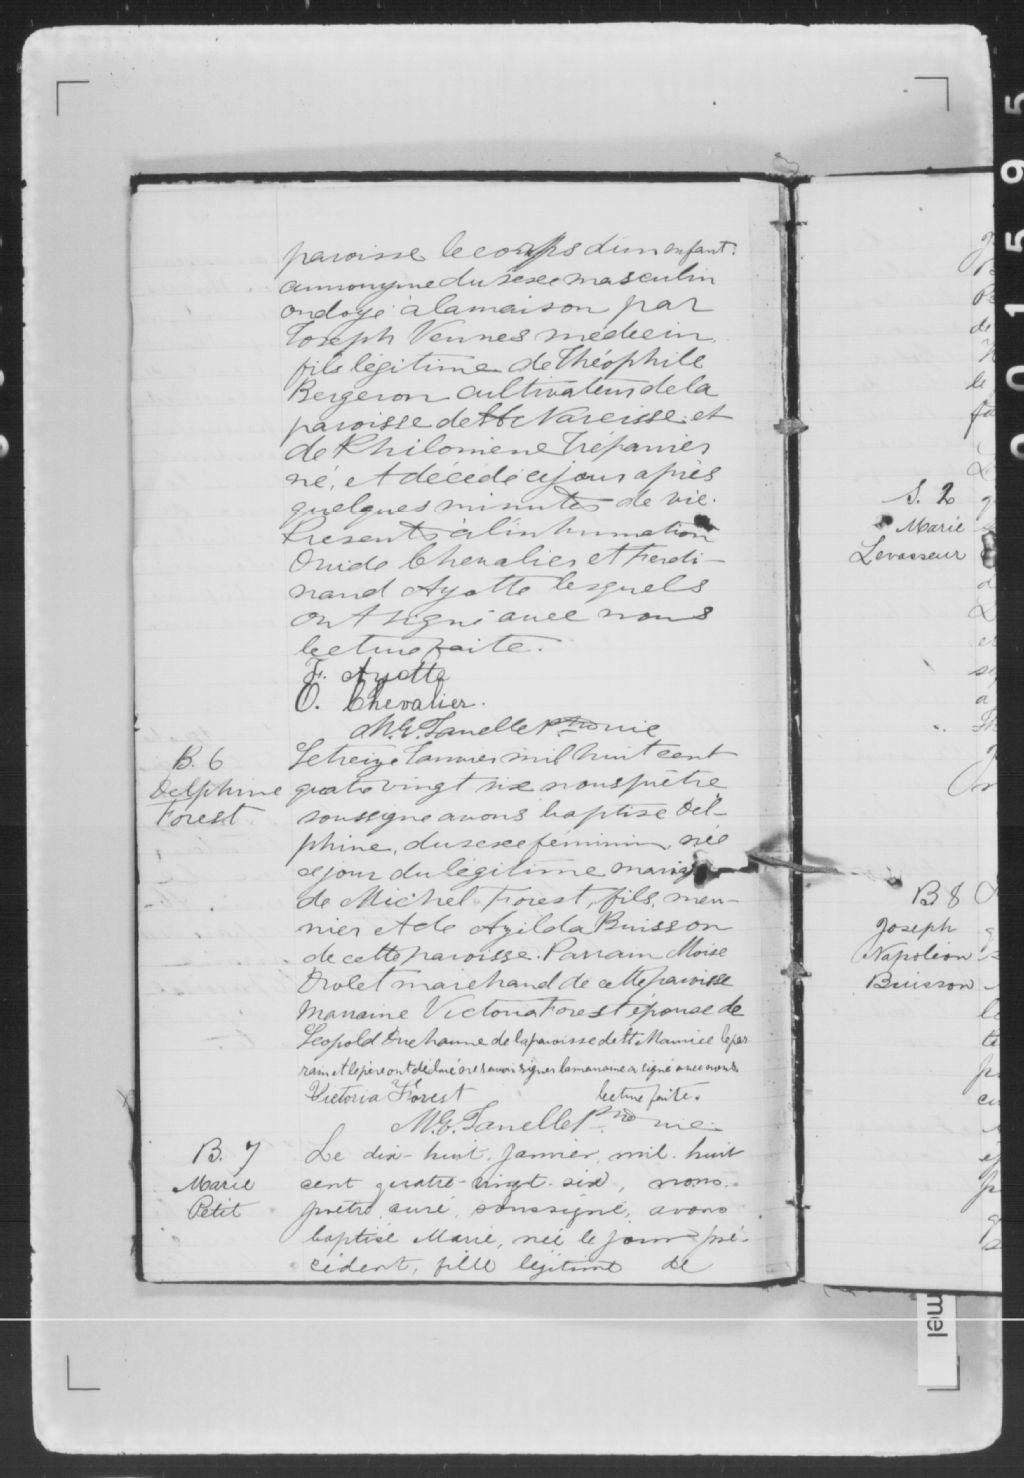 paroisse le corps d'un enfant
annonyme du sexe masculin
ondoyé à la maison par
Joseph Vennes médecin
fils légitime de Théophile
Bergeron cultivateur de la
paroisse de St Narcisse et
de Philomène Trépanier
né, et décédé ce jour après
quelques minutes de vie.
Présents à l'inhumation
Ovide Chevalier et Ferdi-
nand Ayotte lesquels
ont signé avec nous
lecture faite.
F. Ayotte
O. Chevalier.
Ptre
B. 6
Delphine
Forest
Le treize Janvier mil huit cent
quatre vingt six nous prêtre
soussigné avons baptisé Del-
phine, du sexe féminin, née
ce jour du légitime mariage
de Michel Forest, fils, meu-
nier et de Azilda Buisson
de cette paroisse. Parrain Moise
Drolet marchand de cette paroisse
Marraine Victoria Forest épouse de
Léopold Duchaine de la paroisse de St Maurice le par
rain et le père ont déclaré ne savoir signer la marraine a signé avec nous
Victoria Forest lecture faite.
Ptre
B. 7
Marie
Petit
Le dix-huit Janvier, mil huit
cent quatre-vingt-six, nous
prêtre curé soussigné, avons
baptisé Marie, née le jour pré-
cédent, fille légitime de
S. 2
Marie
Levasseur
B 8
Joseph
Napoléon
Buisson
mel